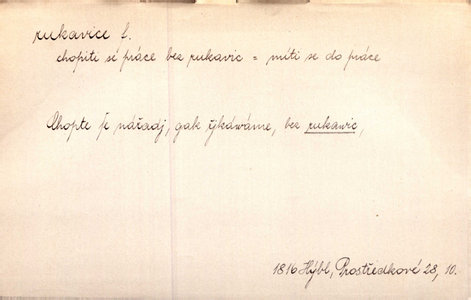 rukavice f.
chopiti se práce bez rukavic = míti se do práce
Chopte se nářadj, gak řjkáwáme, bez rukawic,
1816 Hýbl, Prostředkowé 28, 10.